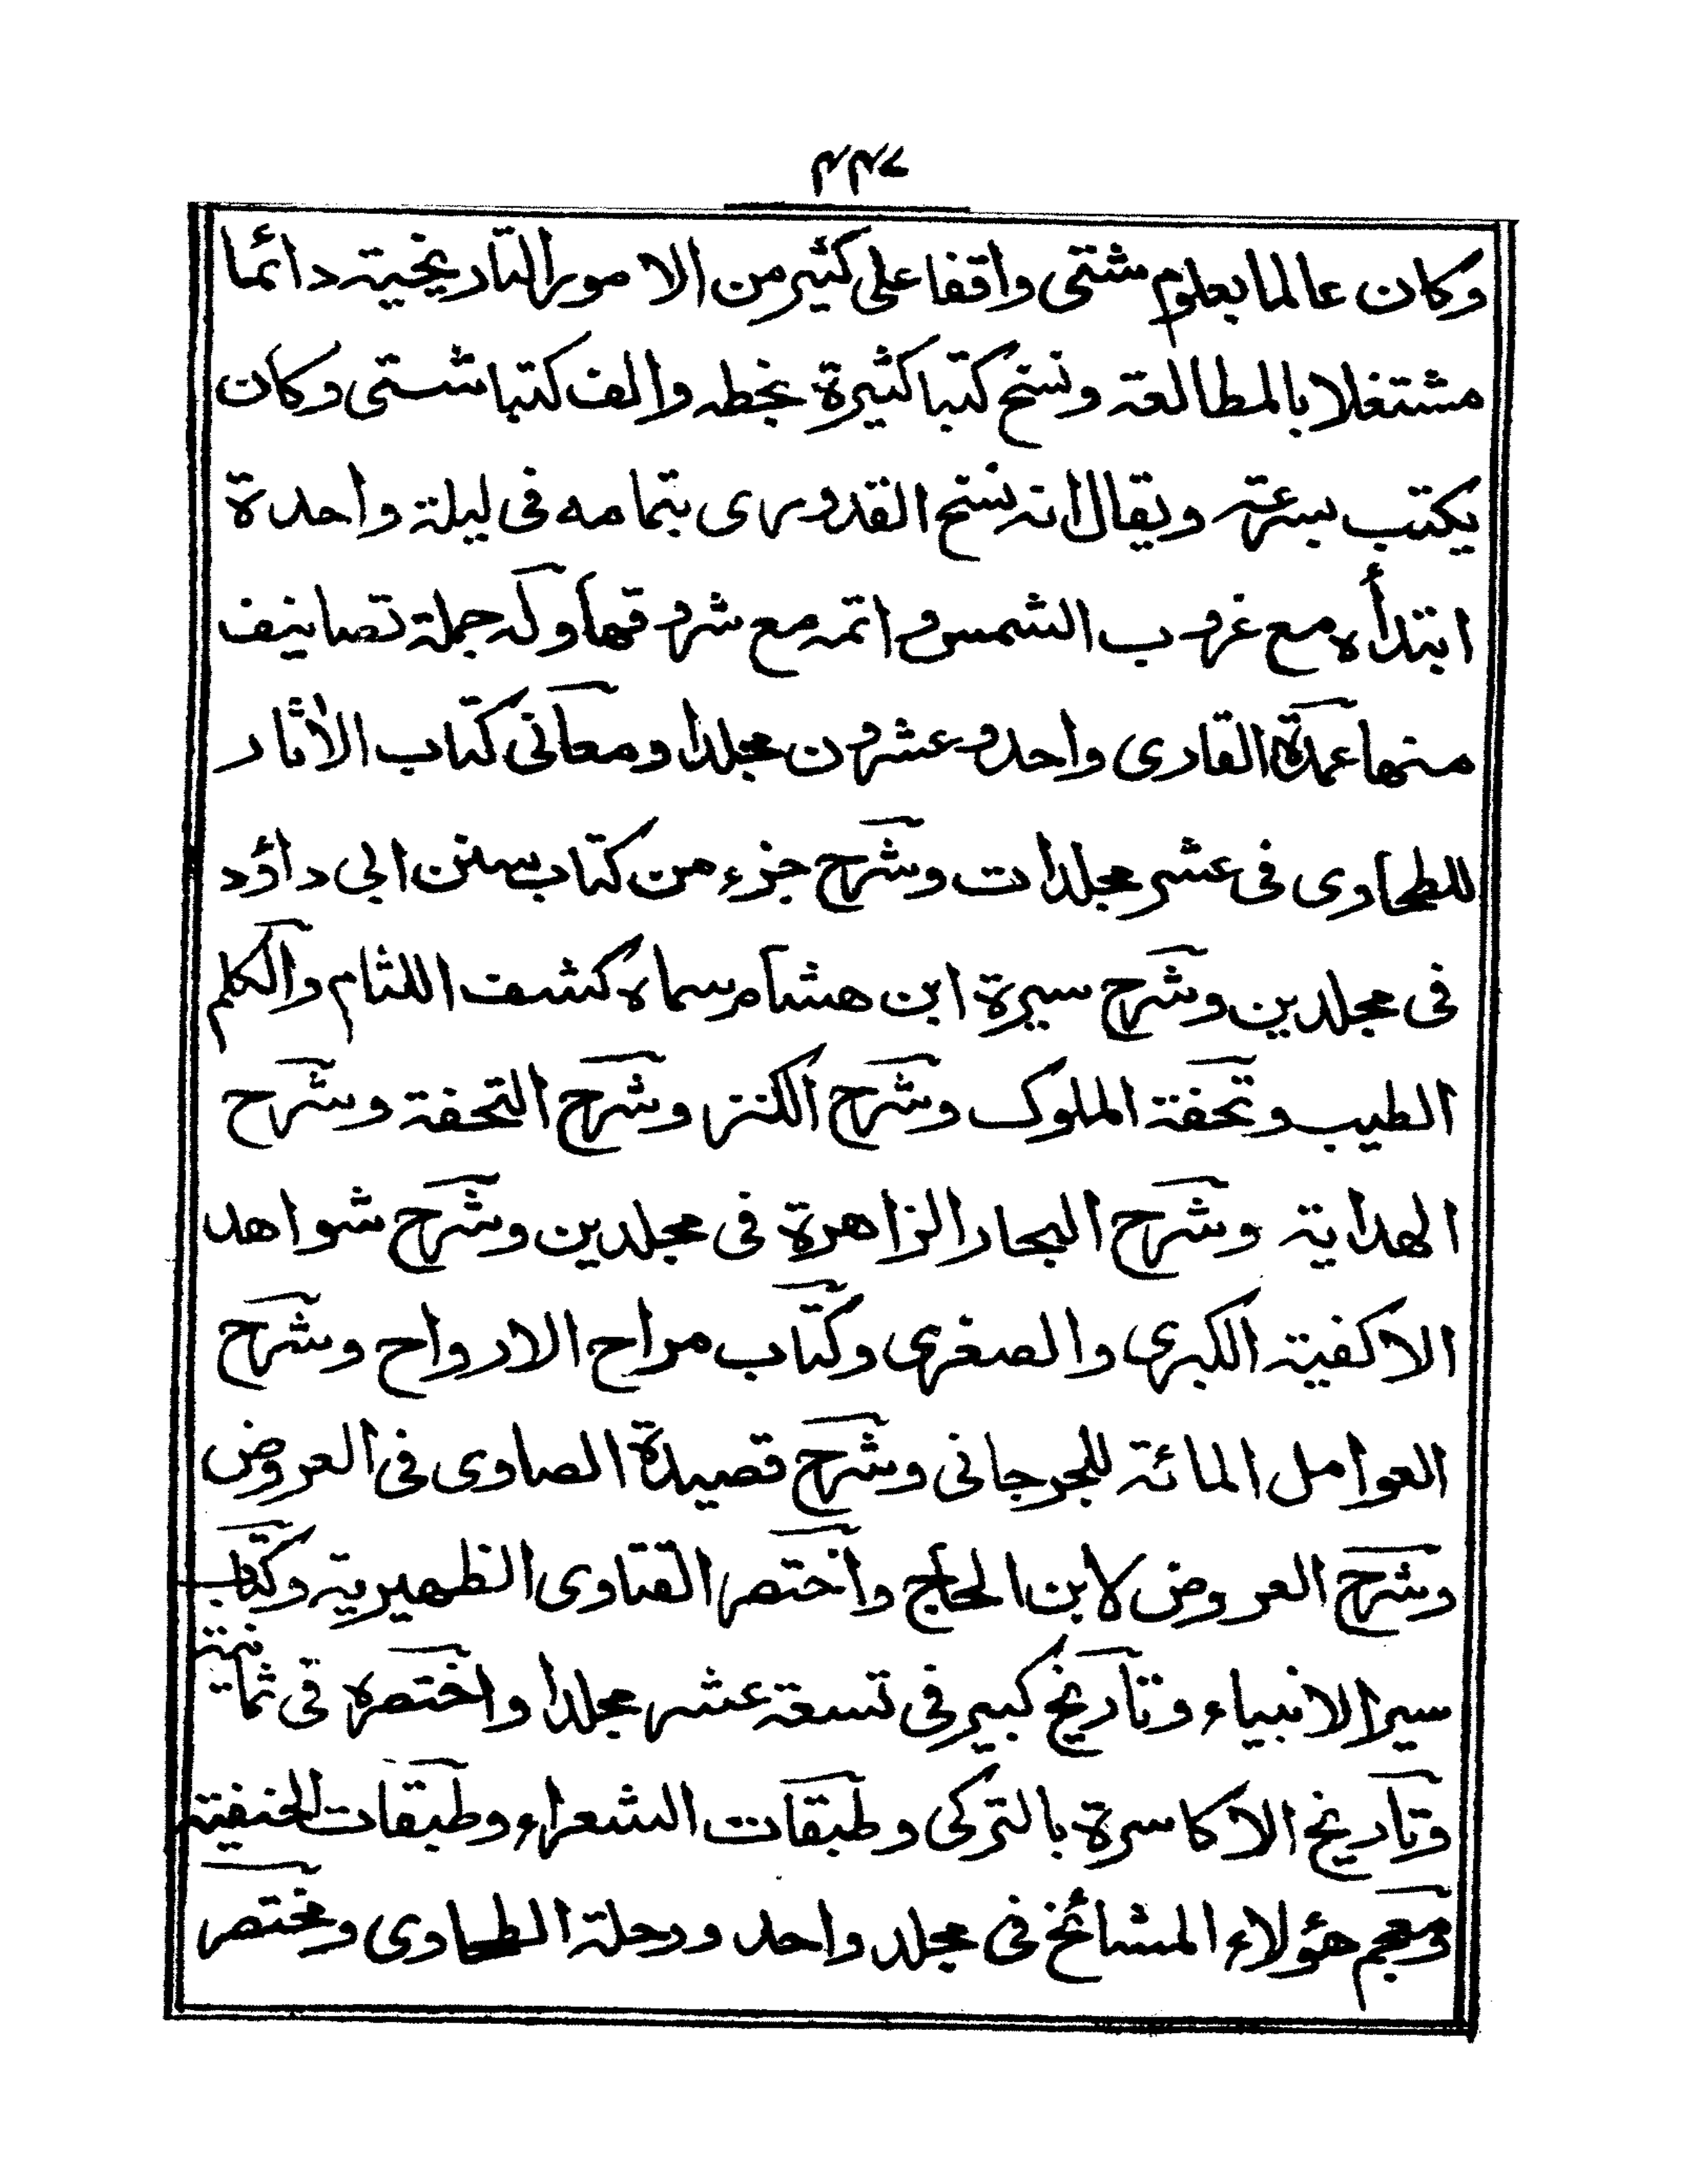 وكان عالما بعلوم شتى واقفا على كثير من الامور التاريخية دائما
مشتغلا بالمطالعة ونسخ كتبا كثيرة بخطه والف كتبا شتى وكان
يكتب بسرعة ويقال انه نسخ القدورى بتمامه فى ليلة واحدة
ابتدأه مع غروب الشمس واتمه مع شروقها وله جملة تصانيف
منها عمدة القارى واحد وعشرون مجلدا ومعانى كتاب الاثار
للطحاوى فى عشر مجلدات وشرح جزء من كتاب سنن ابى داؤد
فى مجلدين وشرح سيرة ابن هشام سماه كشف اللثام والكلم
الطيب وتحفة الملوك وشرح الكنز وشرح التحفة وشرح
الهداية وشرح البحار الزاهرة فى مجلدين وشرح شواهد
الاكفية الكبرى والصغرى وكتاب مراح الارواح وشرح
العوامل المائة للجرجانى وشرح قصيدة الصاوى فى العروض
وشرح العروض لابن الحاج واختصر الفتاوى الظهيرية وكتاب
سير الانبياء وتاريخ كبير فى تسعة عشر مجلدا واختصره فى ثمانية
وتاريخ الاكاسرة بالتركى وطبقات الشعراء وطبقات الحنفية
ومعجم هؤلاء المشائخ فى مجلد واحد ورحلة الطحاوى ومختصر